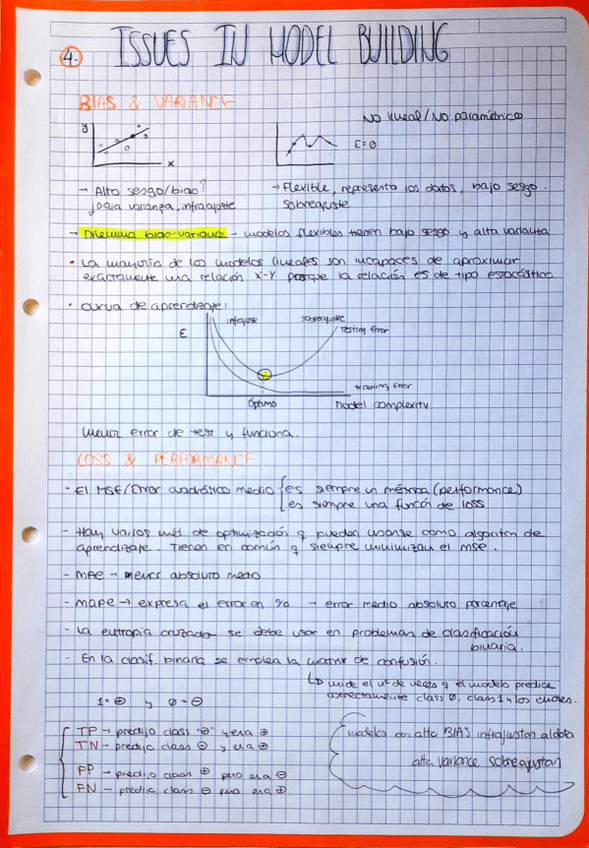 4. ISSUES IN MODEL BUILDING
BIAS & VARIANCE
No lineal/No paramétrico
y
x
ε=0
→ Alto sesgo/bias
baja varianza, infraajuste
→ Flexible, representa los datos, bajo sesgo.
sobreajuste
→ Dilemma bias-variance - modelos flexibles tienen bajo sesgo y alta varianza
• La mayoría de los modelos lineales son incapaces de aproximar
exactamente una relación X-Y porque la relación es de tipo estocástico
• curva de aprendizaje:
infrajuste
sobreajuste
Testing Error
ε
training Error
Óptimo
Model complexity
Menor error de test y funciona.
LOSS & PERFORMANCE
- El MSE/Error cuadrático medio { es siempre un métrica (performance)
es siempre una función de loss
- Hay varios mét. de optimización q pueden usarse como algoritm de
aprendizaje. Tienen en común q siempre minimizan el mse.
- MAE → absoluto medio
- MAPE → expresa el error en % → error medio absoluto porcentaje
- La entropía cruzada se debe usar en problemas de clasificación
binaria.
- En la clasif. binaria se emplea la matriz de confusión.
↳ mide el nº de veces q el modelo predice
correctamente class 0, class 1 y los errores.
1=⊕ y 0=⊖
TP → predijo class "⊕" y era ⊕
TN → predijo class ⊖ y era ⊕
FP → predijo class ⊕ pero era ⊖
FN → predijo class ⊖ pero era ⊕
modelos con alto BIAS infrajustan al data
alta variance sobreajustan